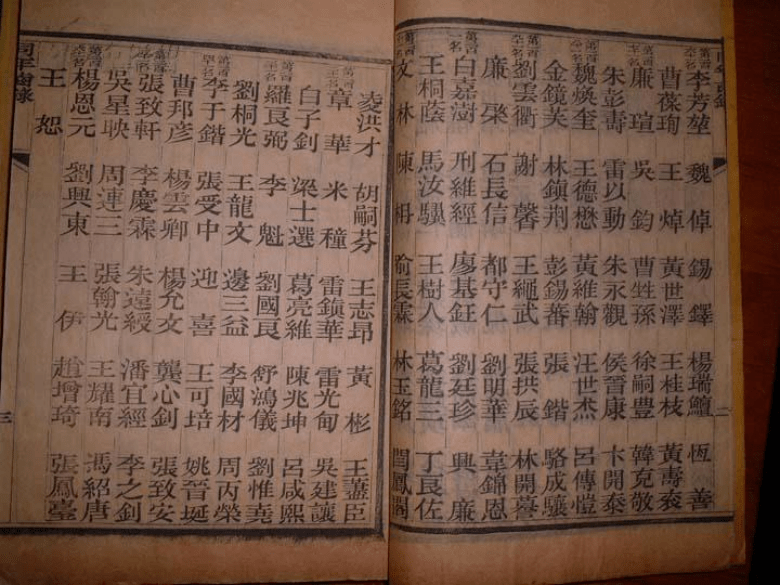 李芳堃 魏倬 錫鐸 楊瑞鱣 恆善
曹葆珣 王焯 黃世澤 王桂枝 黃壽袞
廉瑄 吳鈞 曹甡孫 徐嗣豊 韓克敬
朱彭壽 雷以動 朱永觀 侯晉康 卞開泰
魏煥奎 王德懋 黃維翰 汪世杰 呂傳愷
金鏡芙 林鎮荆 彭錫蕃 張鍇 駱成驤
劉雲衢 謝馨 王繩武 張拱辰 林開謩
廉檠 石長信 都守仁 劉明華 韋錦恩
白嘉澍 刑維經 廖基鈺 劉廷珍 興廉
王桐蔭 馬汝驥 王樹人 葛龍三 丁良佐
文林 陳栩 喻長霖 林玉銘 閻鳳閣
二
凌洪才 胡嗣芬 王志昂 黃彬 王藎臣
章華 米穜 雷鎮華 雷光甸 吳建讓
白子釗 梁士選 葛亮維 陳兆坤 呂咸熙
羅良弼 李魁 劉國良 舒鴻儀 劉惟堯
劉桐光 王龍文 邊三益 李國材 周丙榮
李于鍇 張受中 迎喜 王可培 姚晉埏
曹邦彥 楊雲卿 楊允文 龔心釗 張致安
張致軒 李慶霖 朱遠綬 潘宜經 李之釗
吳星映 周連三 張翰光 王耀南 馮紹唐
楊恩元 劉興東 王伊 趙增琦 張鳳臺
王恕
同年齒錄
三